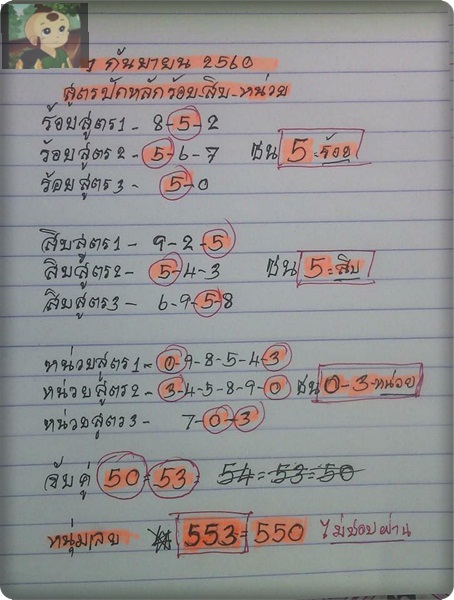 กันยายน 2560
สูตรปักหลักร้อย-สิบ-หน่วย
ร้อยสูตร1- 8-5-2
ร้อยสูตร2- 5-6-7 ชน 5=ร้อย
ร้อยสูตร3- 5-0
สิบสูตร1- 9-2-5
สิบสูตร2- 5-4-3 ชน 5=สิบ
สิบสูตร3- 6-9-5-8
หน่วยสูตร1- 0-9-8-5-4-3
หน่วยสูตร2- 3-4-5-8-9-0 ชน 0-3-หน่วย
หน่วยสูตร3- 7-0-3
จับคู่ 50=53= 54=53=50
หนุ่มเลย 553=550 ไม่ชอบผ่าน